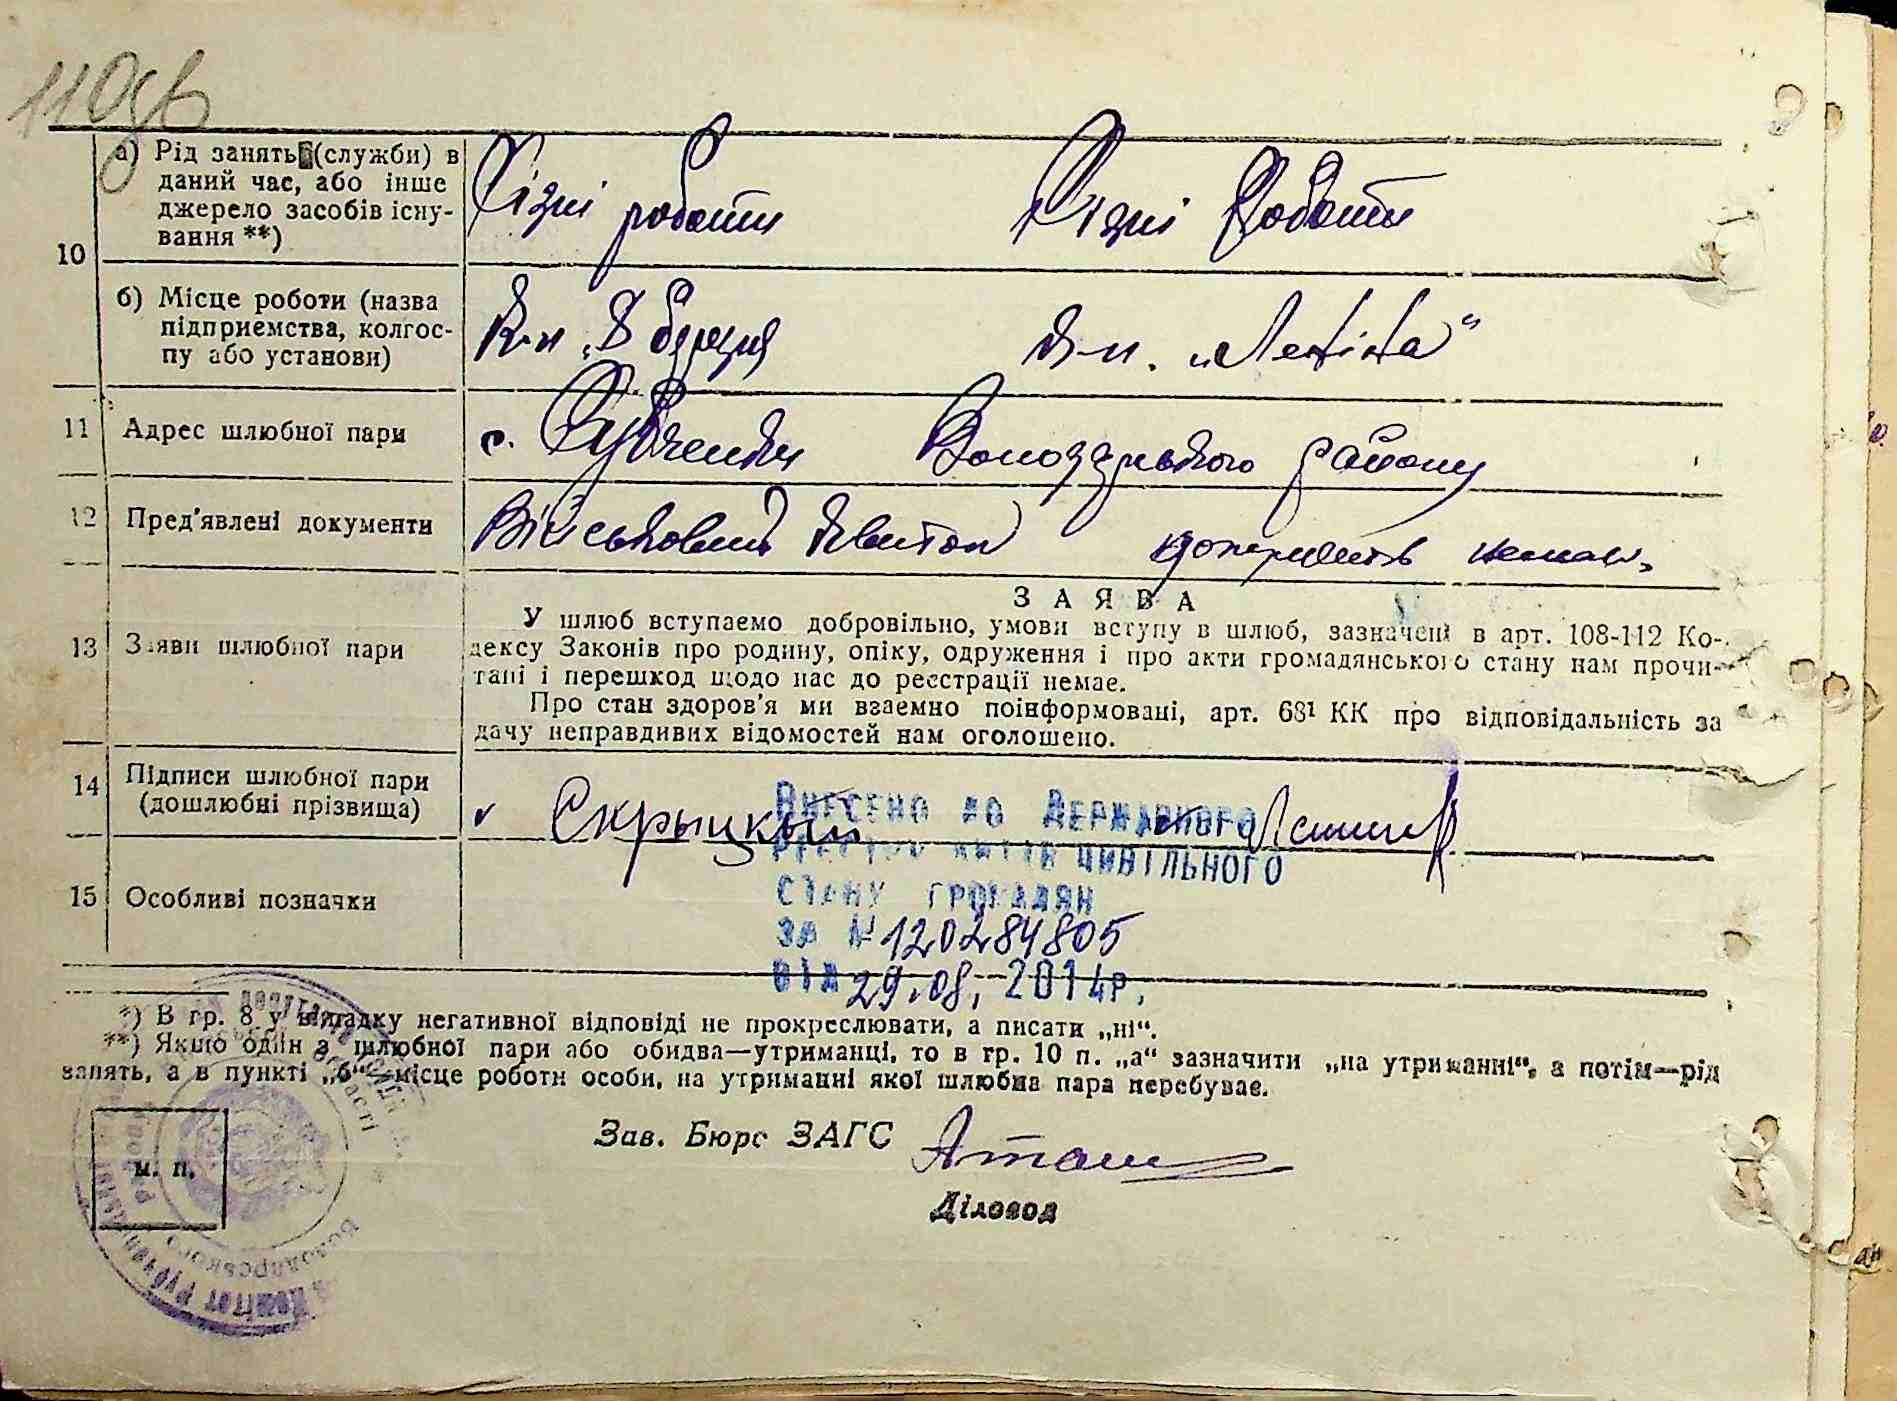 110зв
10 а) Рід занять (служби) в даний час, або інше джерело засобів існування **)
Різні роботи Різні Роботи
б) Місце роботи (назва підприємства, колгоспу або установи)
К-п „8 березня к-п. „Леніна“
11 Адрес шлюбної пари
с. Рубченки Володарського району
12 Пред'явлені документи
Військовий квиток документів немає
З А Я В А
13 Заяви шлюбної пари
У шлюб вступаємо добровільно, умови вступу в шлюб, зазначені в арт. 108-112 Ко-
дексу Законів про родину, опіку, одруження і про акти громадянського стану нам прочи-
тані і перешкод щодо нас до реєстрації немає.
Про стан здоров'я ми взаємно поінформовані, арт. 68¹ КК про відповідальність за
дачу неправдивих відомостей нам оголошено.
14 Підписи шлюбної пари (дошлюбні прізвища)
Скрыцкый
Внесено до Державного
реєстру актів цивільного
стану громадян
за № 120284805
від 29.08. 2014р.
15 Особливі позначки
*) В гр. 8 у випадку негативної відповіді не прокреслювати, а писати „ні“.
**) Якщо один з шлюбної пари або обидва—утриманці, то в гр. 10 п. „а“ зазначити „на утриманні“, а потім—рід
занять, а в пункті „б“—місце роботи особи, на утриманні якої шлюбна пара перебуває.
Зав. Бюро ЗАГС
Діловод
м. п.
Володарського